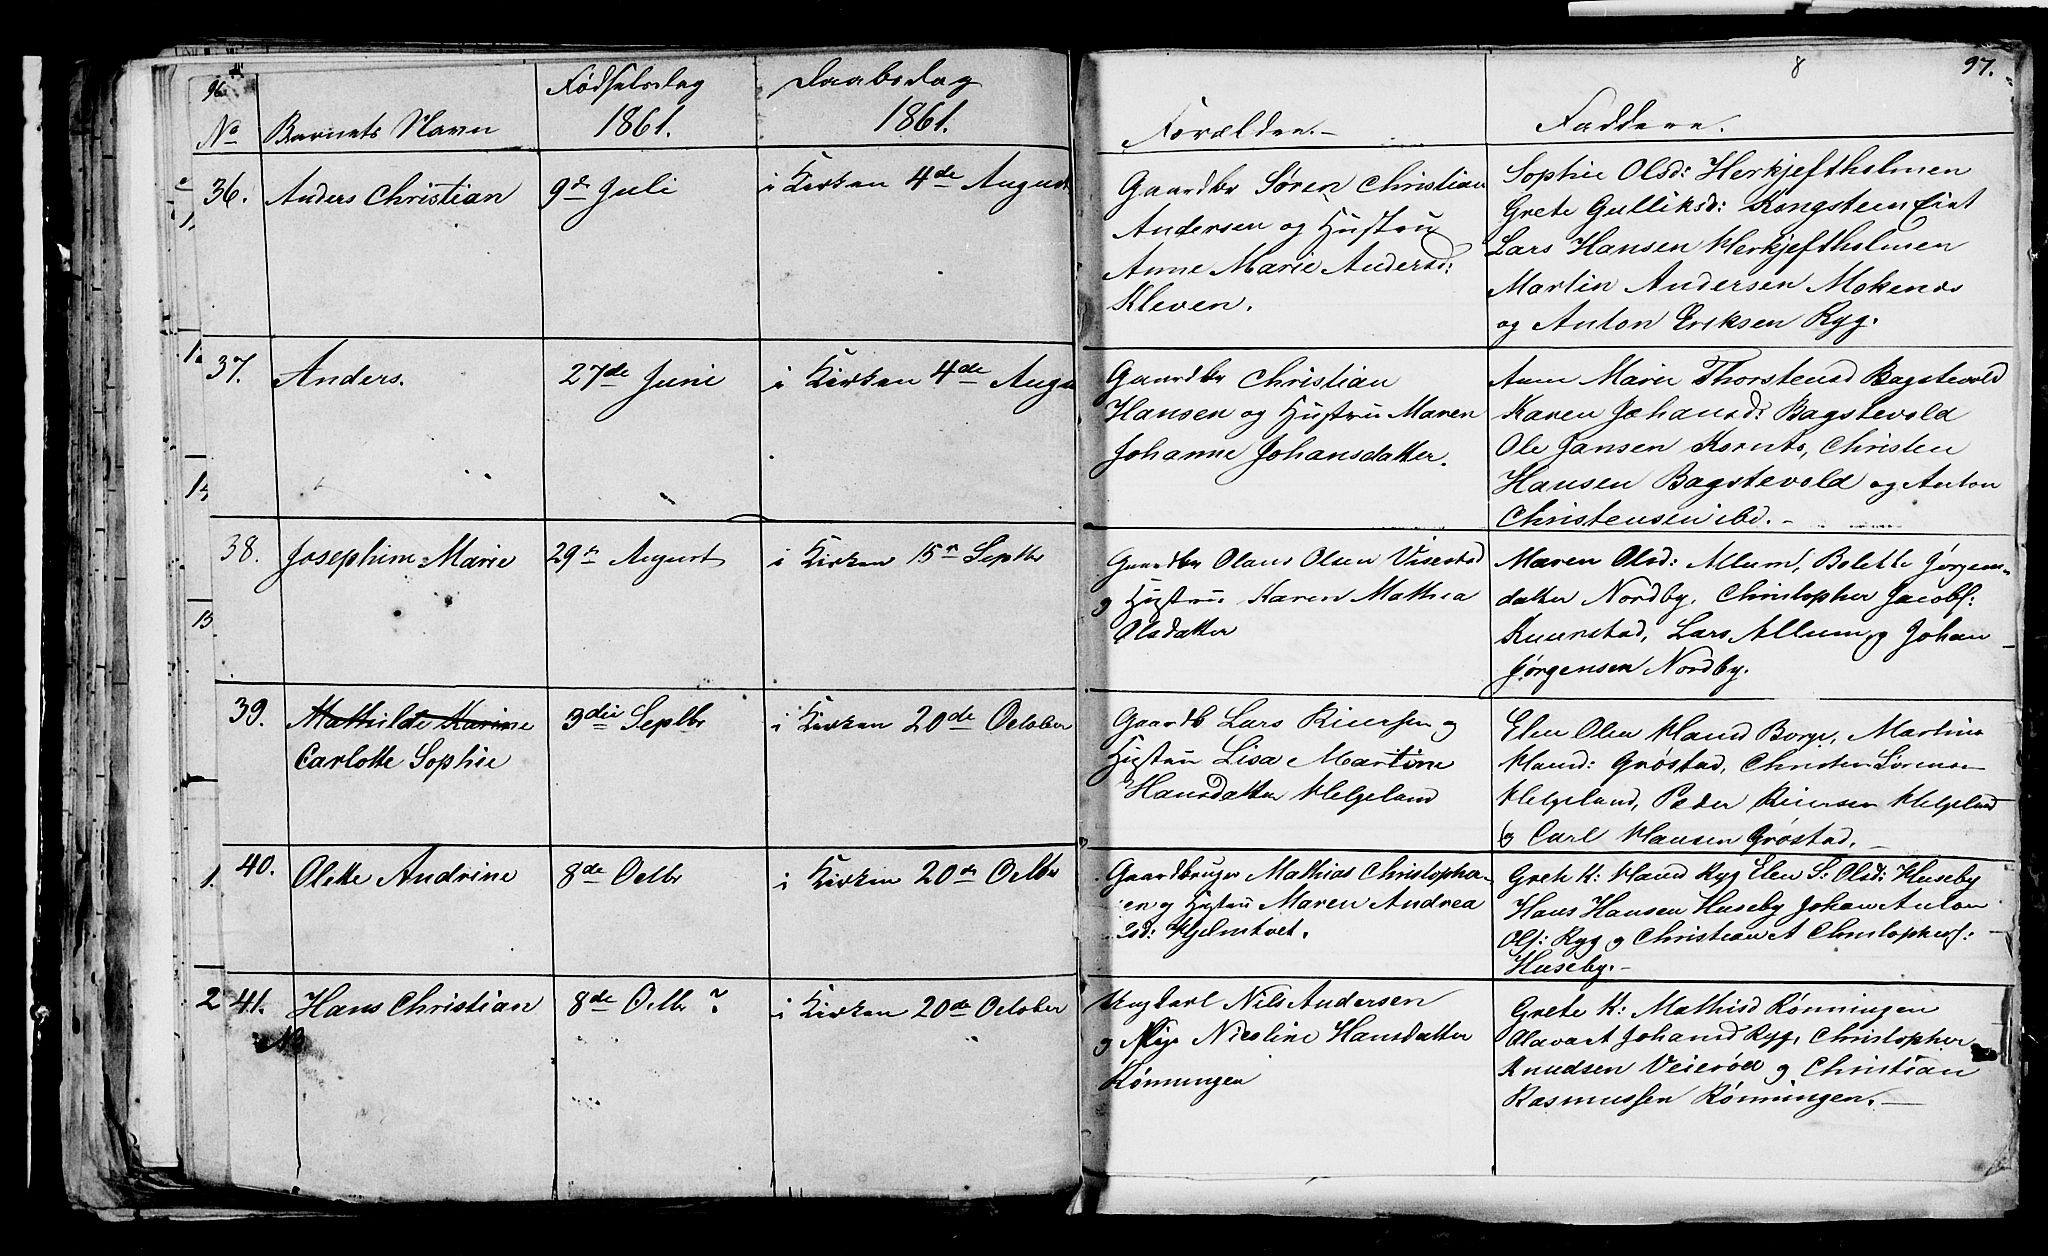 96
No Barnets Navn
Fødselsdag
1861.
Daabsdag
1861.
36. Anders Christian
9de Juli
i Kirken 4de August
37. Anders.
27de Juni
i Kirken 4de Augu
38. Josephine Marie
29de August
i Kirken 15de Septbr
39. Mathilde Karine
Carlotte Sophie
3die Septbr
i Kirken 20de October
1. 40. Olette Andrine
8de Octbr
i Kirken 20de Octbr
2 41. Hans Christian
8de Octbr ?
i Kirken 20de October
8
97.
Forældre.-
Faddere.
Gaardbr Søren Christian
Andersen og Hustru
Anne Marie Andersd:
Kleven.
Sophie Olsd: Herkjeftholmen
Grete Gulliksd: Kongsteen Eiet
Lars Hansen Herkjeftholmen
Martin Andersen Mokenæs
og Anton Eriksen Ryg.
Gaardbr Christian
Hansen og Hustru Maren
Johanne Johansdatter.
Anne Marie Thorstensd Bagstevold
Karen Johansd: Bagstevold
Ole Jansen Kornts, Christen
Hansen Bagstevold og Anton
Christensen ibd. -
Gaardbr Olaus Olsen Visestad
og Hustru Karen Mathea
Olsdatter
Maren Olsd: Allum, Bolette Jørgens-
datter Nordby, Christopher Jacobs:
Kuerstad, Lars Allum og Johan
Jørgensen Nordby.
Gaardb Lars Reiersen og
Hustru Lisa Martine
Hansdatter Helgeland
Elen Olea Hansd Borge, Martine
Hansd: Grøstad, Christen Sørensen
Helgeland, Peder Reiersen Helgeland
og Carl Hansen Grøstad. -
Gaardbruger Mathias Christophers
en og Hustru Maren Andrea
lsd: Hjelmtvet.
Grete K: Hansd Ryg Elen S: Olsd: Huseby
Hans Hansen Huseby Johan Anton
Ols: Ryg og Christian A Christophers:
Huseby. -
Ungkarl Nils Andersen
og Pige Nicoline Hansdatter
Rønningen
Grete K: Mathisd Rønningen
Olava A Johansd Ryg, Christopher
Knudsen Veierød og Christian
Rasmussen Rønningen. -